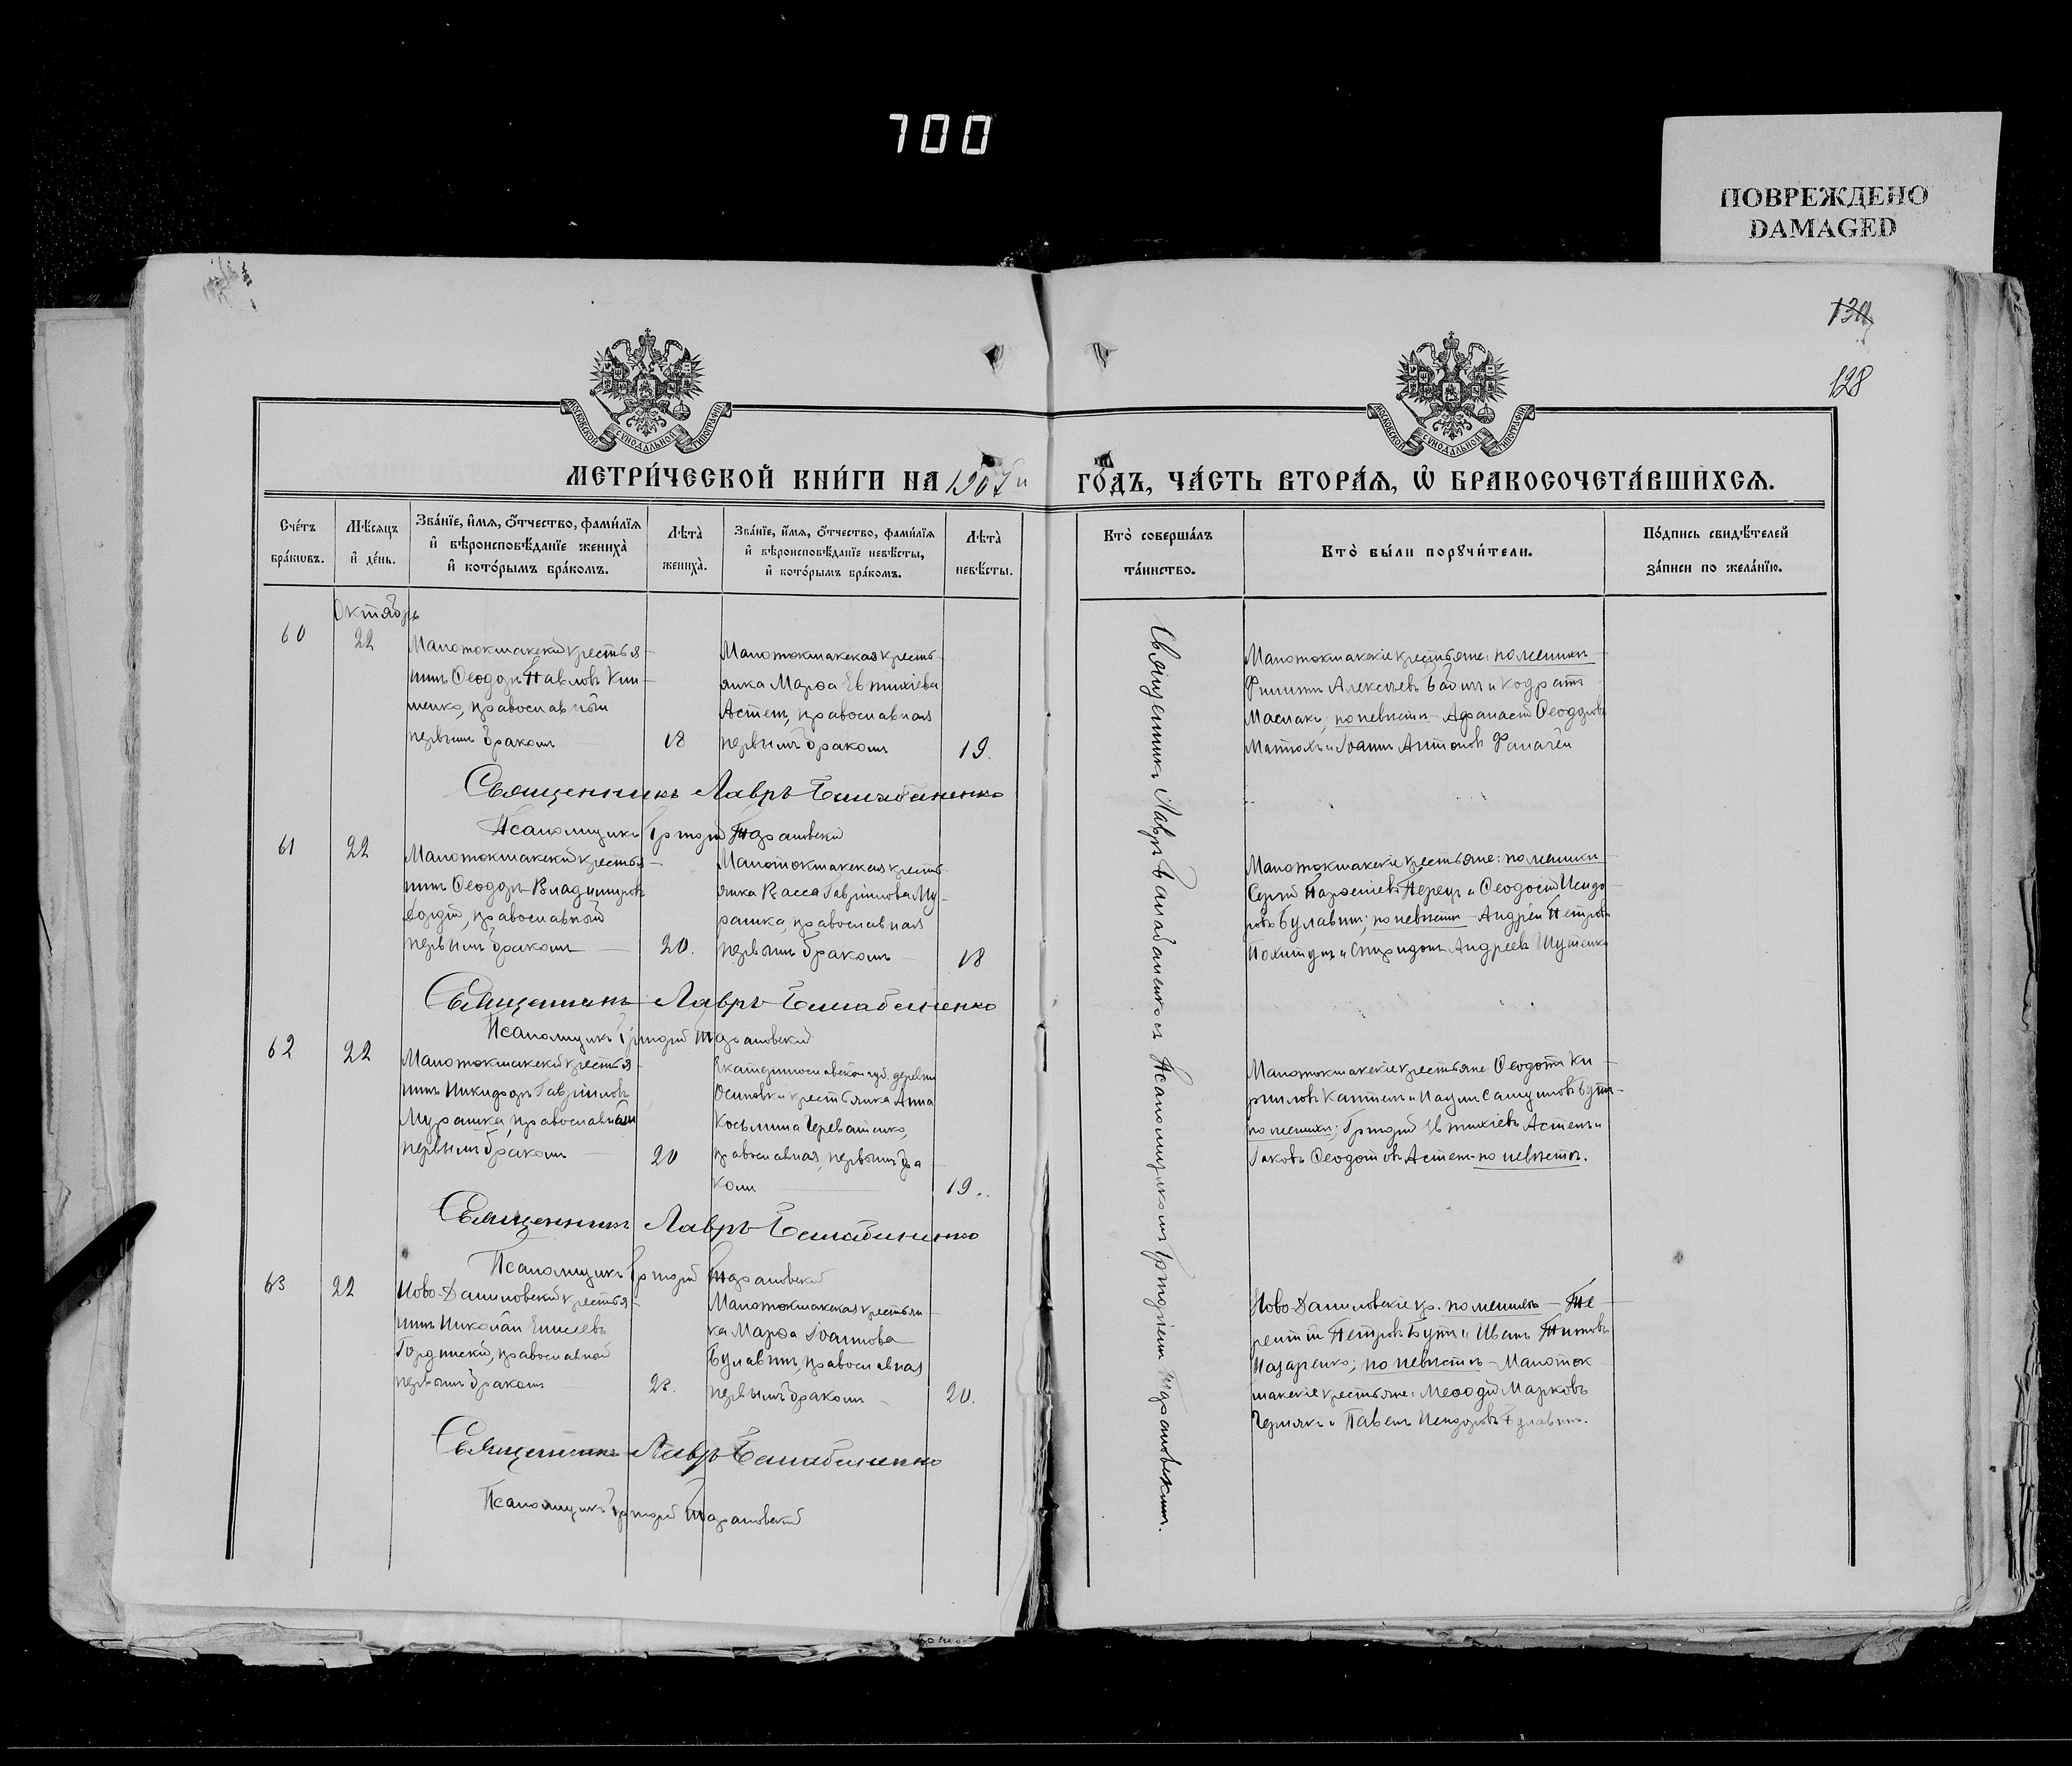 700
ПОВРЕЖДЕНО
DAMAGED
128
МОСКОВСКОЙ СУНОДАЛЬНОЙ ТИПОГРАФІИ
МОСКОВСКОЙ СУНОДАЛЬНОЙ ТИПОГРАФІИ
МЕТРИ́ЧЕСКОЙ КНИ́ГИ НА 1907й ГО́ДЪ, ЧА́СТЬ ВТОРА́Ѧ, Ѽ БРАКОСОЧЕТА́ВШИХСѦ.
Сче́тъ бра́кωвъ.
Мѣ́сѧцъ и҆ де́нь.
Зва́нїе, и҆́мѧ, ѻ҆́тчество, фами́лїѧ и҆ вѣроисповѣ́данїе жениха̀ и҆ кото́рымъ бра́комъ.
Лѣта̀ жениха̀.
Зва́нїе, и҆́мѧ, ѻ҆́тчество, фами́лїѧ и҆ вѣроисповѣ́данїе невѣ́сты, и҆ кото́рымъ бра́комъ.
Лѣта̀ невѣ́сты.
Кто̀ соверша́лъ та́инство.
Кто̀ бы́ли порꙋчи́тели.
По́дпись свидѣ́телей за́писи по жела́нїю.
Октябрь
60
22
Малотокмакскій крестья-
нинъ Ѳеодоръ Павловъ
православный
первымъ бракомъ
18
Малотокмакская кресть-
янка Марѳа Евтихіева
Астенъ, православная
первымъ бракомъ
19.
Малотокмакскіе крестьяне: по женихѣ
Филиппъ Алексѣевъ Бабичъ и Кодратъ
Маслакъ; по невѣстѣ - Аѳанасій Ѳеодоровъ
и Іоаннъ Антоновъ
Священникъ Лавръ Балабаненко
Псаломщикъ Григорій Тарановскій
61
22
Малотокмакскій крестья-
нинъ Ѳеодоръ Владиміровъ
православный
первымъ бракомъ
20.
Малотокмакская кресть-
янка Васса Гавріилова Му-
рашка, православная
первымъ бракомъ
18
Малотокмакскіе крестьяне: по женихѣ
Сергій Парѳеніевъ Перецъ и Ѳеодосій Исидо-
ровъ Булавинъ; по невѣстѣ - Андрей Петровъ
и Спиридонъ Андреевъ Шутенко
Священникъ Лавръ Балабаненко
Псаломщикъ Григорій Тарановскій
62
22
Малотокмакскій крестья-
нинъ Никифоръ Гавріиловъ
Мурашка, православный
первымъ бракомъ
20
Екатеринославской губ. деревни
Осиповки крестьянка Анна
Косьмина Череватенко,
православная, первымъ бра-
комъ
19.
Малотокмакскіе крестьяне Ѳеодотъ Ки-
рилловъ и Наумъ Самуиловъ Бутъ-
по женихѣ; Григорій Евтихіевъ Астенъ и
Іаковъ Ѳеодотовъ Астенъ-по невѣстѣ.
Священникъ Лавръ Балабаненко
Псаломщикъ Григорій Тарановскій
63
22
Ново-Даниловскій крестья-
нинъ Николай Елисеевъ
Гординскій, православный
первымъ бракомъ
Малотокмакская крестьян-
ка Марѳа Іоаннова
Булавинъ, православная
первымъ бракомъ
20.
Ново-Даниловскіе кр. по женихѣ - Те-
рентій Петровъ Бутъ и Иванъ Титовъ
Назаренко; по невѣстѣ - Малоток-
макскіе крестьяне: Меѳодій Марковъ
Чернякъ и Павелъ Исидоровъ Булавинъ.
Священникъ Лавръ Балабаненко
Псаломщикъ Григорій Тарановскій
Священникъ Лавръ Балабаненко съ Псаломщикомъ Григоріемъ Тарановскимъ.